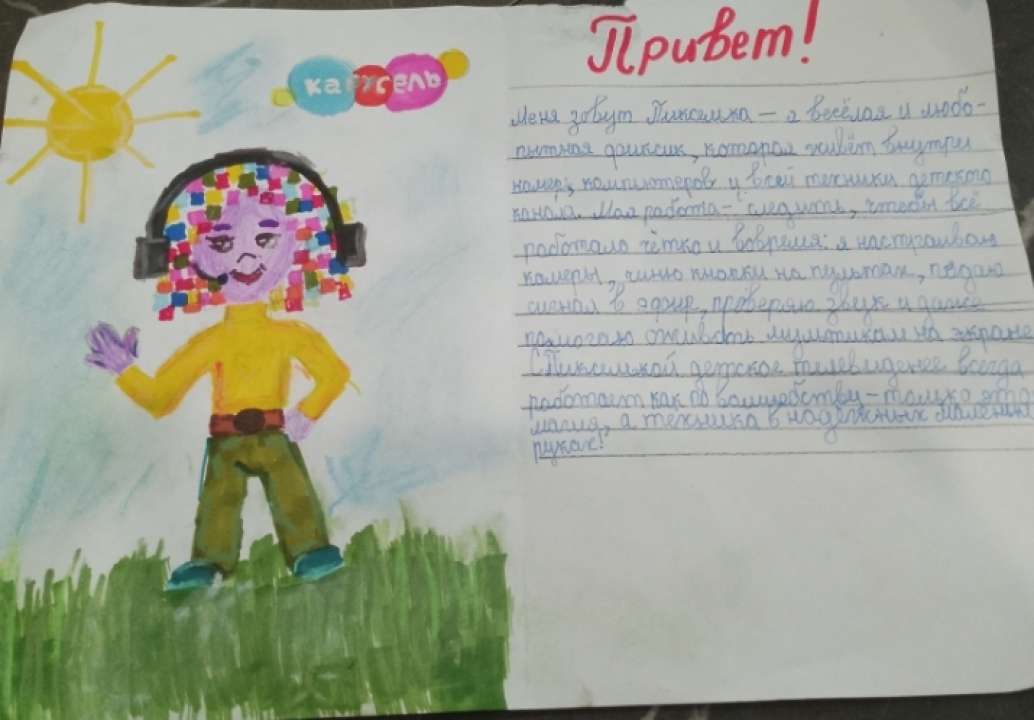 карусель
Привет!
Меня зовут Пикселька – я весёлая и любо-
пытная фиксик, которая живёт внутри
камер, компьютеров и всей техники детского
канала. Моя работа – следить, чтобы всё
работало чётко и вовремя: я настраиваю
камеры, чиню кнопки на пультах, подаю
сигнал в эфир, проверяю звук и даже
помогаю оживать мультикам на экране
С Пикселькой детское телевидение всегда
работает как по волшебству – только это
магия, а техника в надёжных маленьких
руках!